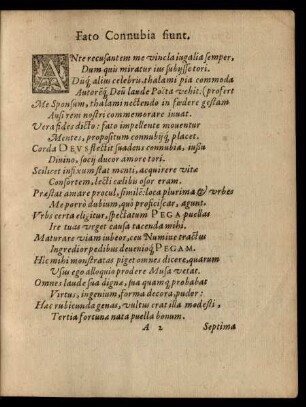 Fato Connubia fiunt.
ANte recusantem me vincla iugalia semper,
Dum quis miratur ius subijsse tori.
Dūq́; alius celebris, thalami pia commoda
Autorēq́; Deū laude Poëta vehit. (profert
Me Sponsum, thalami nectendo in fœdere gestam
Ausi rem nostri commemorare iuvat.
Vera fides dicto: fato impellente moventur
Mentes, propositum connubijq́; placet.
Corda DEVS flectit suadens connubia, iussu
Divino, socij ducor amore tori.
Scilicet infixum stat menti, acquirere vitæ
Consortem, lecti cælibis osor eram.
Præstat amare procul, simili: loca plurima & vrbes
Me porrò dubium, quò proficiscar, agunt.
Vrbs certa eligitur, spectatum PEGA puellas
Ire tuas vrget causa tacenda mihi.
Maturare viam iubeor, ceu Numine tractus
Ingredior pedibus devenioq́; PEGAM.
Hic mihi monstratas piget omnes dicere, quarum
Usu ego alloquio prodere Musa vetat.
Omnes laude sua digna, sua quamq́; probabat
Virtus, ingenium, forma decora, pudor:
Hæc rubicunda genas, vultus erat illa modesti,
Tertia fortuna nata puella bonum.
A 2 Septima